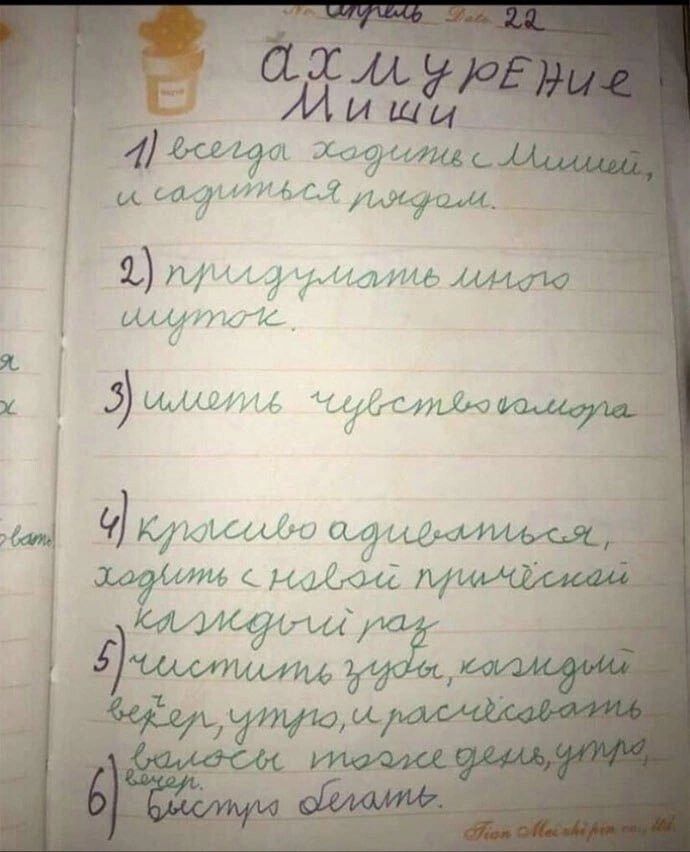 No. апрель Date 22
ахмурение
Миши
1) всегда ходить с Мишей,
и садиться рядом.
2) придумать много
шуток.
я
х
3) иметь чувство юмора
овать
4) красиво адиваться,
ходить с новой причёской
каждый раз
5) чистить зубы, каждый
вечер, утро, и расчёсовать
волосы тоже день, утро,
вечер.
6) Быстро бегать.
Tian Mei zhi pin co., ltd.